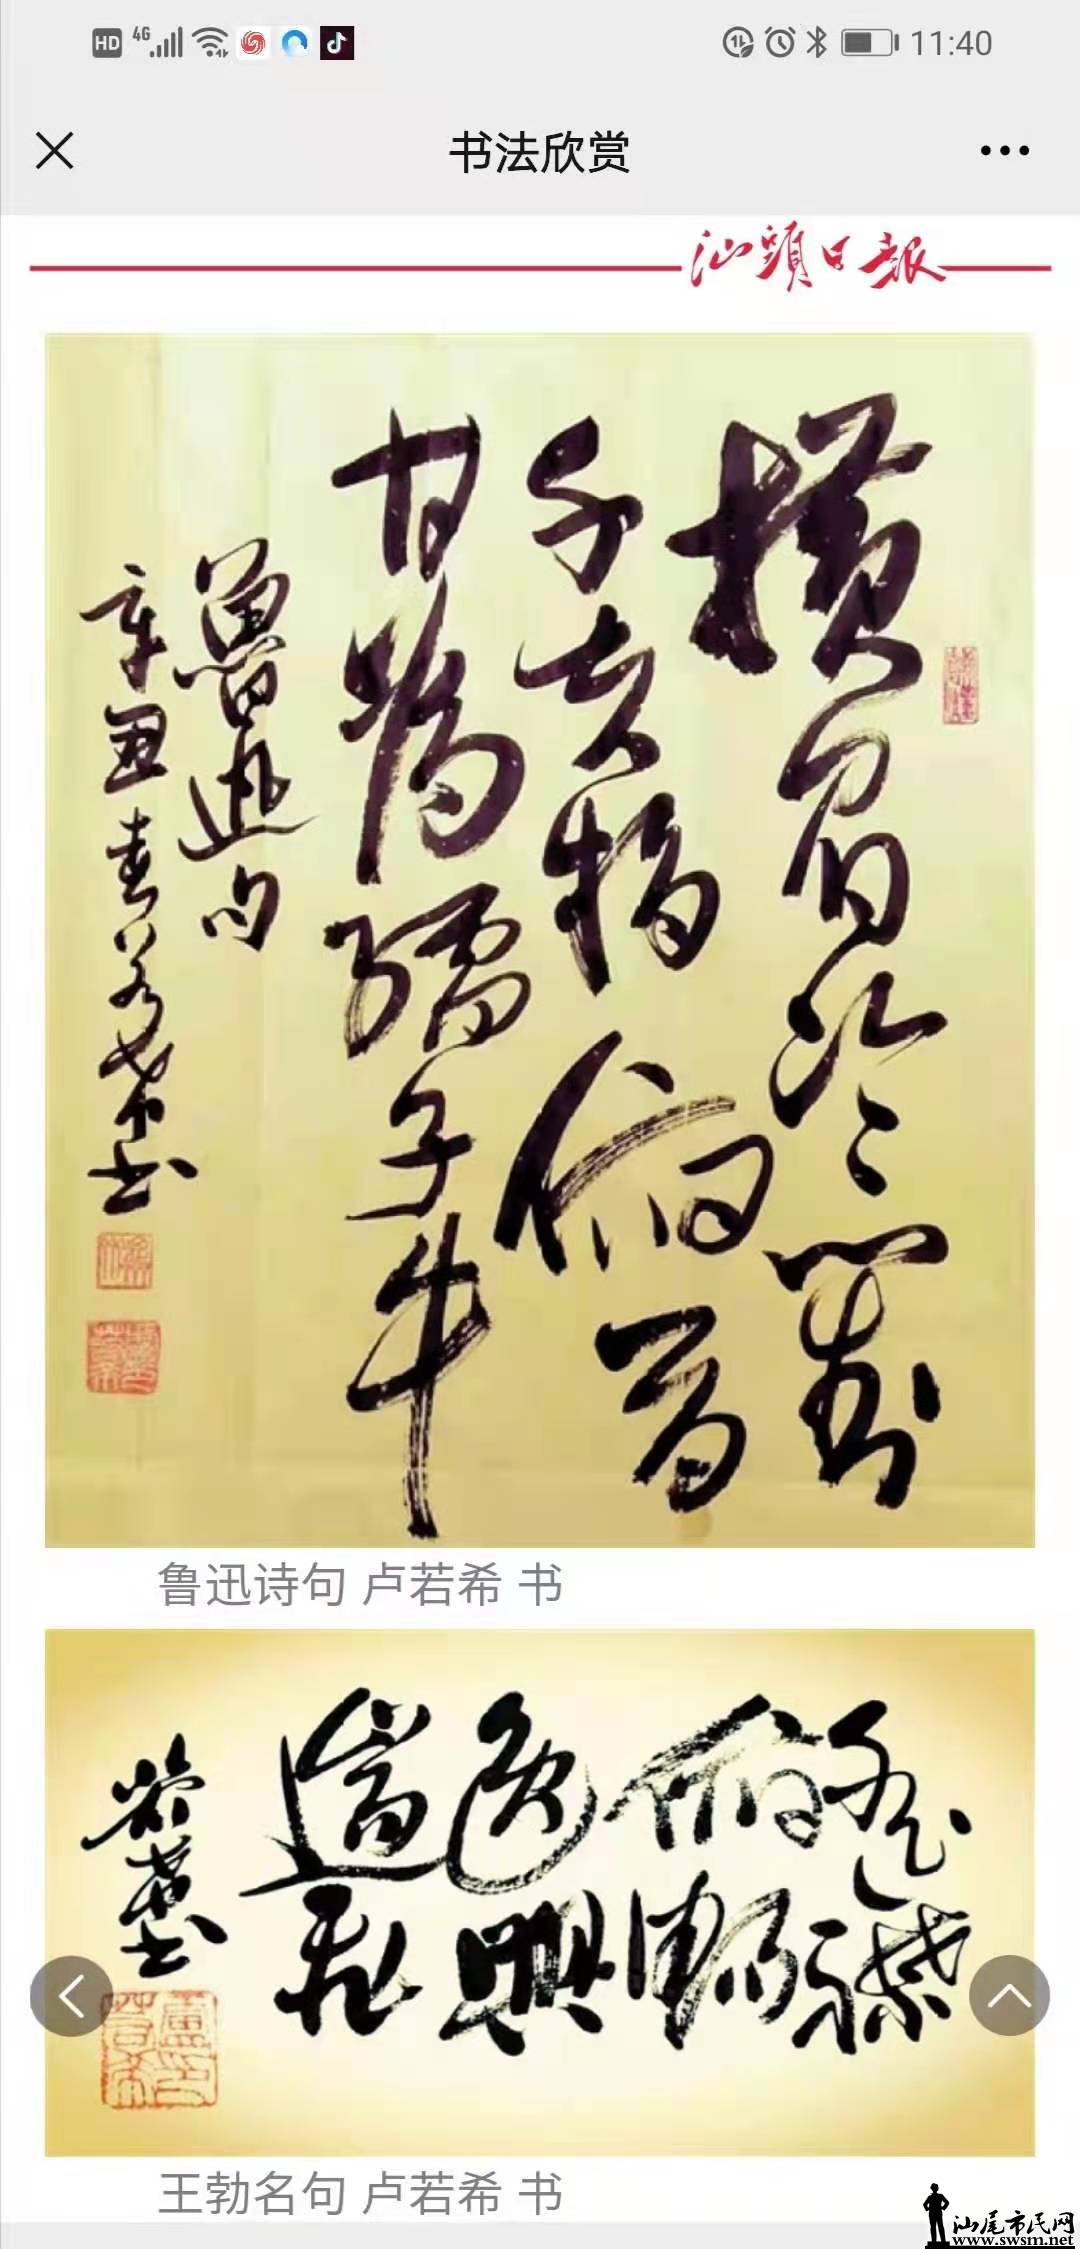 HD 4G 11:40
书法欣赏
汕頭日報
横眉冷對
千夫指俯首
甘為孺子牛
魯迅句
辛丑春若希书
鲁迅诗句 卢若希 书
遥襟
俯暢
逸興
遄飛
若希书
王勃名句 卢若希 书
汕尾市民网
www.swsm.net